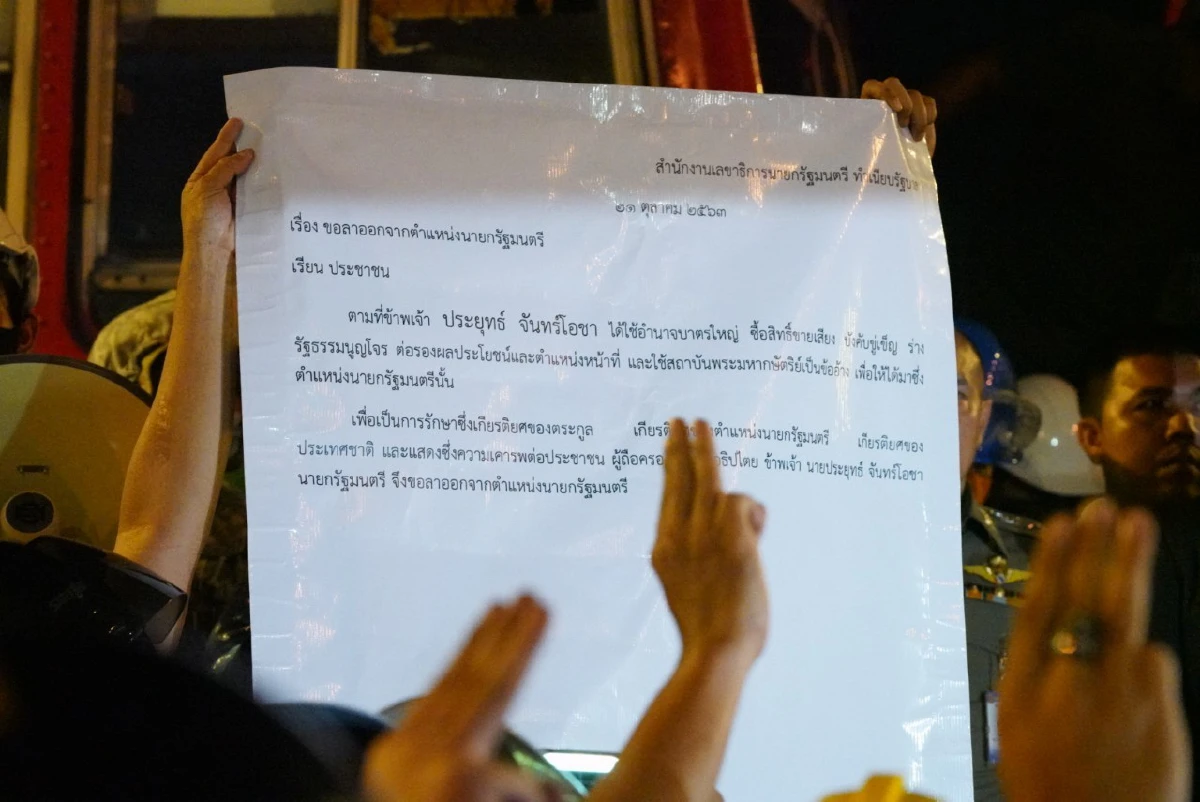 สำนักงานเลขาธิการนายกรัฐมนตรี ทำเนียบรัฐบาล
๒๑ ตุลาคม ๒๕๖๓
เรื่อง ขอลาออกจากตำแหน่งนายกรัฐมนตรี
เรียน ประชาชน
ตามที่ข้าพเจ้า ประยุทธ์ จันทร์โอชา ได้ใช้อำนาจบาตรใหญ่ ซื้อสิทธิ์ขายเสียง บังคับขู่เข็ญ ร่าง
รัฐธรรมนูญโจร ต่อรองผลประโยชน์และตำแหน่งหน้าที่ และใช้สถาบันพระมหากษัตริย์เป็นข้ออ้าง เพื่อให้ได้มาซึ่ง
ตำแหน่งนายกรัฐมนตรีนั้น
เพื่อเป็นการรักษาซึ่งเกียรติยศของตระกูล ตำแหน่งนายกรัฐมนตรี เกียรติยศของ
ประเทศชาติ และแสดงซึ่งความเคารพต่อประชาชน ผู้ถือครอง ข้าพเจ้า นายประยุทธ์ จันทร์โอชา
นายกรัฐมนตรี จึงขอลาออกจากตำแหน่งนายกรัฐมนตรี